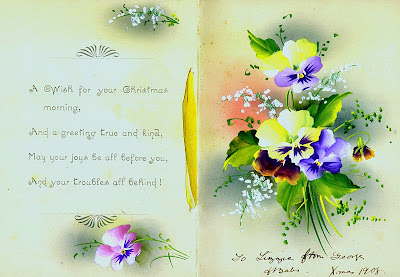 A Wish for your Christmas
morning,
And a greeting true and kind,
May your joys be all before you,
And your troubles all behind!
To Lizzie from George
& Babs. Xmas 1908.